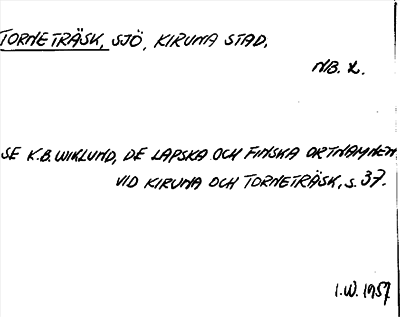 TORNETRÄSK, SJÖ, KIRUNA STAD.
NB. L.
SE K.B. WIKLUND, DE LAPSKA OCH FINSKA ORTNAMNEN
VID KIRUNA OCH TORNETRÄSK, s. 37.
I.W. 1957